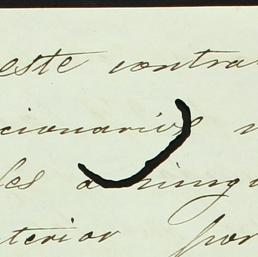 este contra
cionarios n
les a ningu
terior por